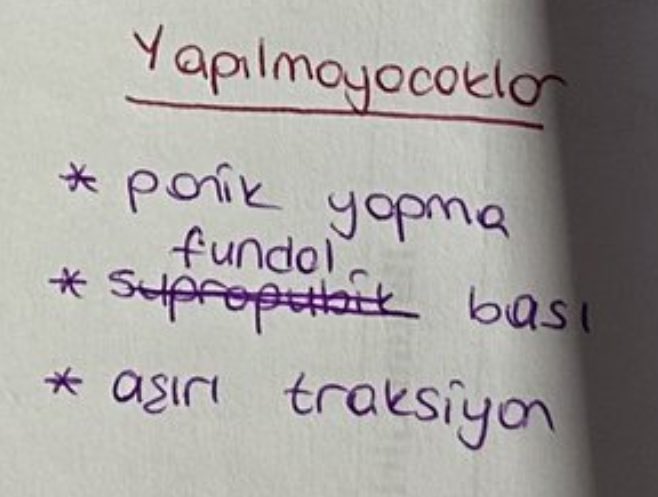 Yapılmayacaklar
* panik yapma
fundal
* suprapubik bası
* aşırı traksiyon